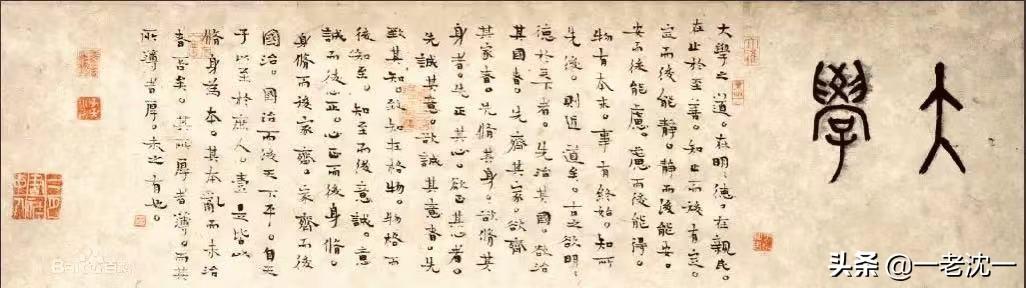 大學
大學之道。在明〻德。在親民。
在止於至善。知止而后有定。
定而后能靜。靜而后能安。
安而后能慮。慮而后能得。
物有本末。事有終始。知所
先後。則近道矣。古之欲明〻
德於天下者。先治其國。欲治
其國者。先齊其家。欲齊
其家者。先脩其身。欲脩其
身者。先正其心。欲正其心者。
先誠其意。欲誠其意者。先
致其知。致知在格物。物格而
後知至。知至而後意誠。意
誠而後心正。心正而後身脩。
身脩而後家齊。家齊而後
國治。國治而後天下平。自天
子以至於庶人。壹是皆以
脩身為本。其本亂而末治
者否矣。其所厚者薄。而其
所薄者厚。未之有也。
Baidu百科
头条 @一老沈一